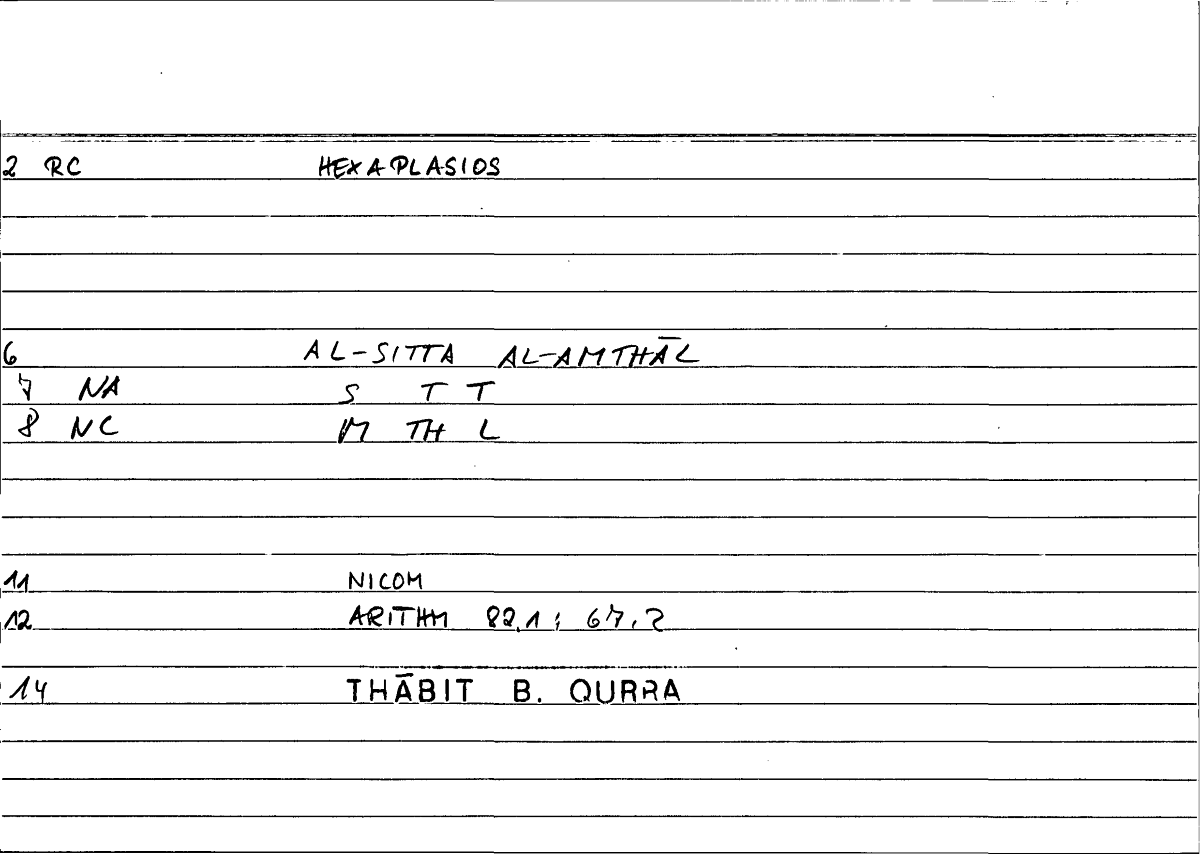 2 RC HEXAPLASIOS
6 AL-SITTA AL-AMTHĀL
7 NA S T T
8 NC M TH L
11 NICOM
12 ARITHM 82,1; 67.2
14 THĀBIT B. QURRA